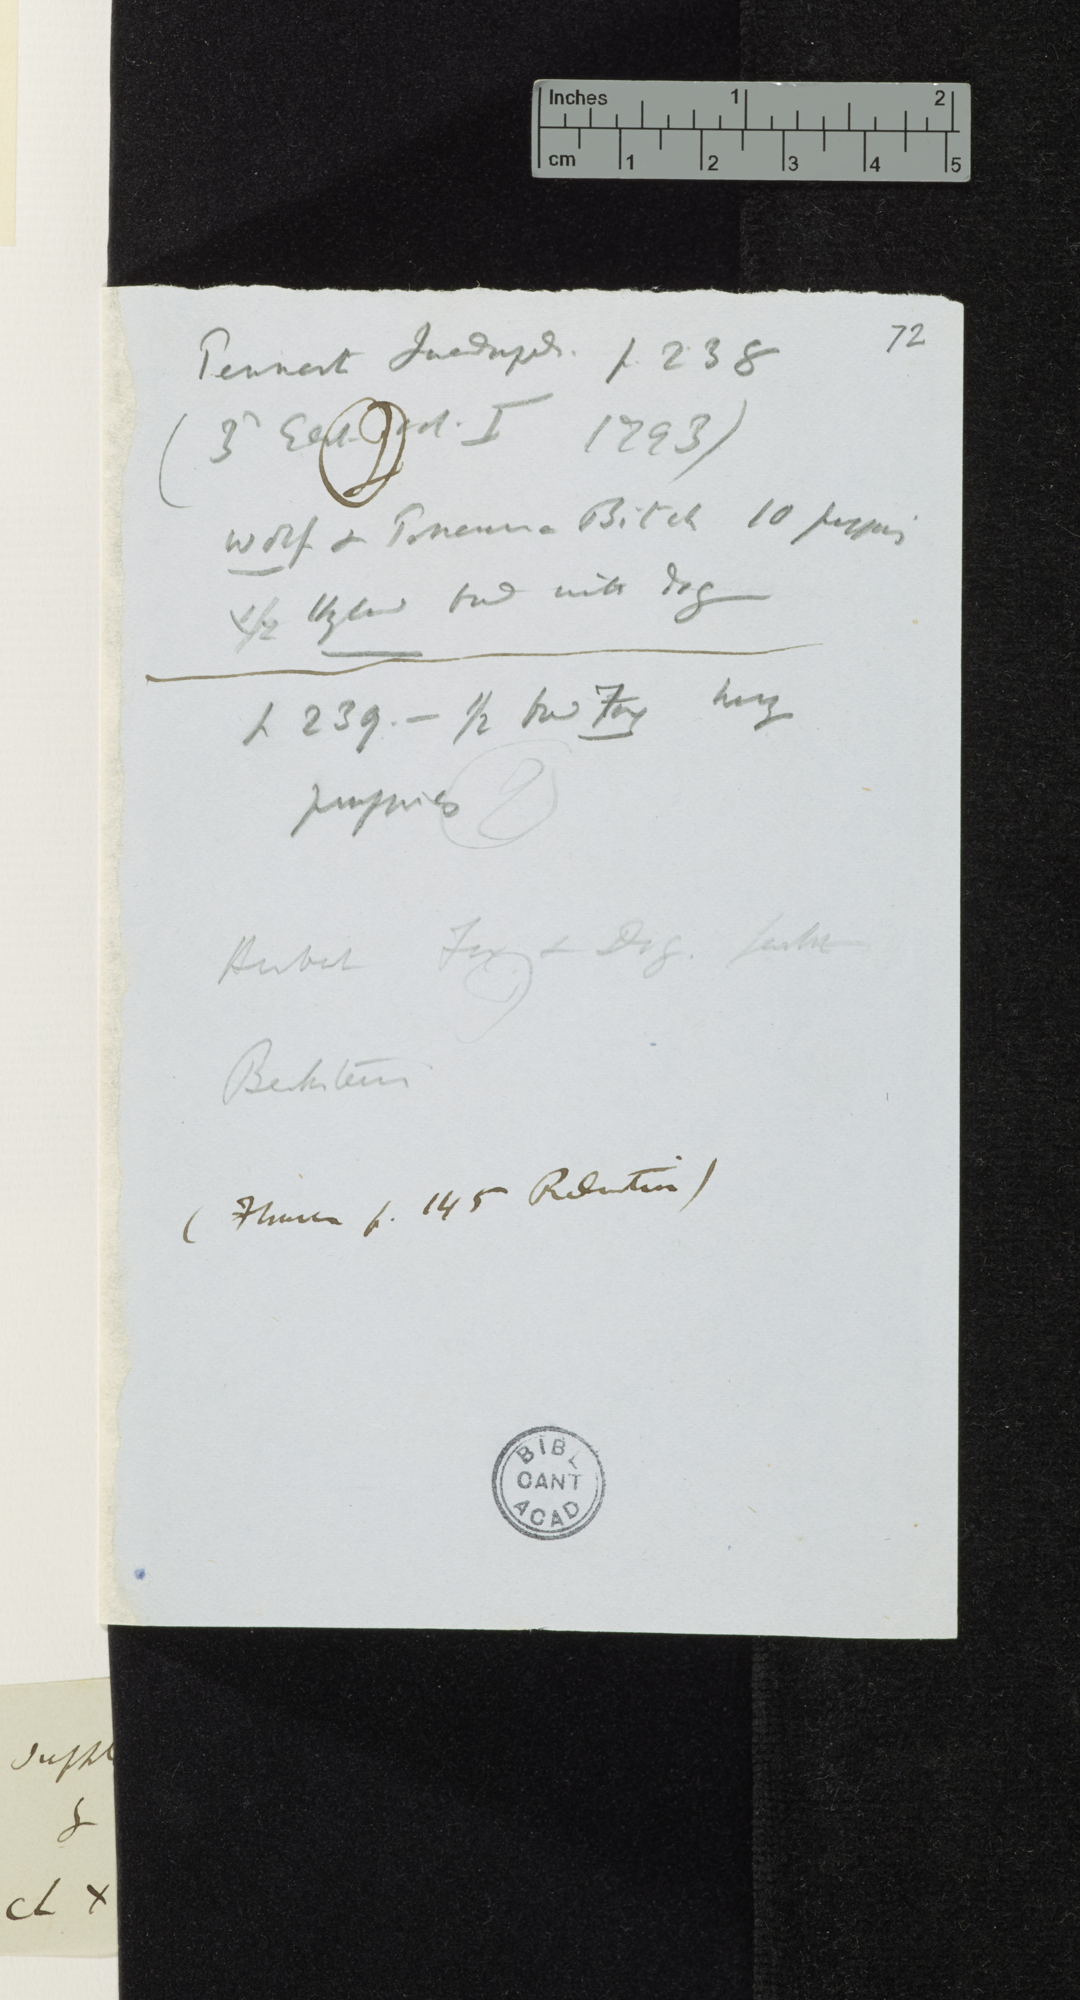 Inches 1 2
cm 1 2 3 4 5
72
Pennant Quadrupeds. p 238
(3d Edit. vol. I 1793)
Wolf & Pomeranian Bitch 10 puppies
1/2 bred with dog
p 239. — 1/2 bred Fox having
puppies
Herbert Fox & Dog.
Bechstein
( p. 145 Reduction)
BIBL
CANT
ACAD
Suppl
&
ch X